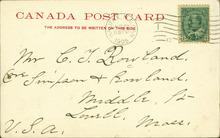 CANADA POST CARD
THE ADDRESS TO BE WRITTEN ON THIS SIDE
Mr. C. J. Rowland,
Care Simpson & Rowland,
Middle St
Lowell
Mass.
U.S.A.